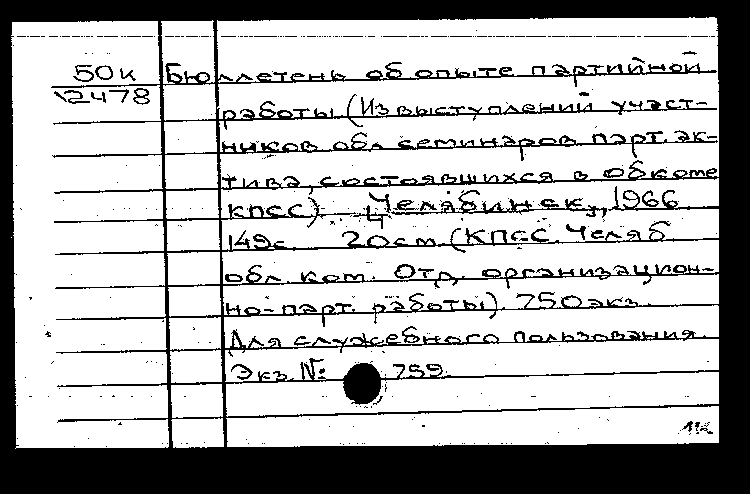 50к Бюллетень об опыте партийной
12478 работы (Из выступлений участ-
ников обл семинаров парт. ак-
тива, состоявшихся в Обкоме
КПСС) Челябинск, 1966
149с. 20см. (КПСС. Челяб
обл. ком. Отд. организацион-
но-парт. работы). 750экз.
Для служебного пользования.
Экз. № 759.